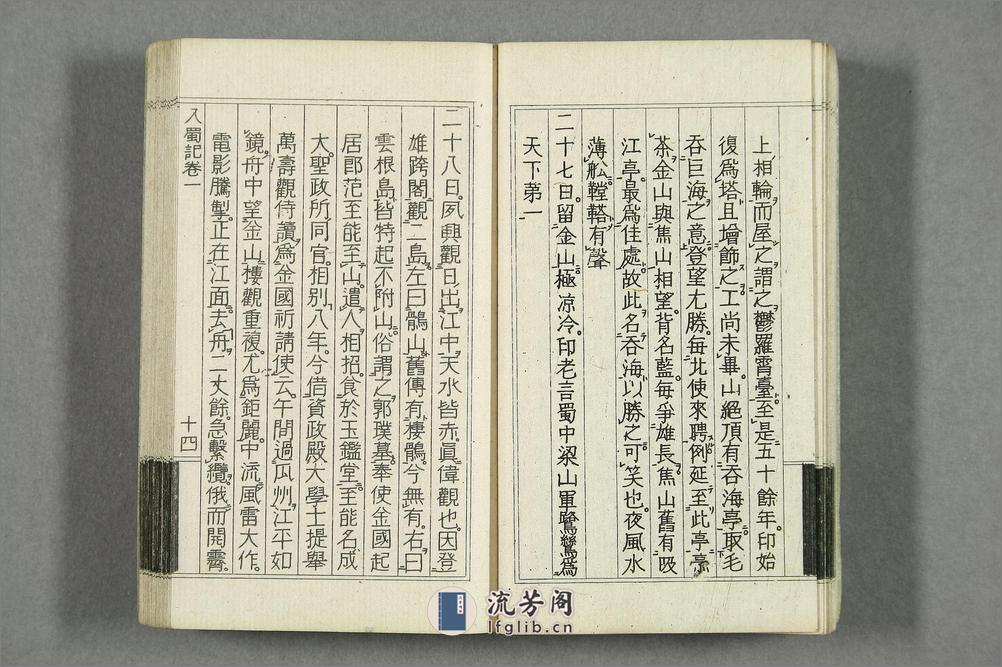 上相輪而屋之謂之鬱羅霄臺至是五十餘年。印始
復爲塔且增飾之工尚未畢。山絕頂有吞海亭。取毛
吞巨海之意登望尤勝。每北使來聘例延至此亭烹
茶金山與焦山相望。皆名藍每爭雄長焦山舊有吸
江亭最爲佳處。故此名吞海以勝之可笑也。夜風水
薄舩鞺鞳有聲
二十七日。留金山極凉冷。印老言蜀中梁山軍鷺鷥爲
天下第一
二十八日。夙興觀日出江中天水皆赤。眞偉觀也。因登
雄跨閣觀二島。左曰鶻山。舊傳有棲鶻。今無有。右曰
雲根島。皆特起不附山。俗謂之郭璞墓。奉使金國起
居郎范至能至山。遣人相招食於玉鑑堂。至能名成
大。聖政所同官。相別八年。今借資政殿大學士提舉
萬壽觀侍讀爲金國祈請使云。午間過瓜州。江平如
鏡。舟中望金山樓觀重複。尤爲鉅麗。中流風雷大作。
電影騰掣。正在江面。去舟二丈餘。急繫纜。俄而開霽。
入蜀記卷一
十四
流芳阁
lfglib.cn